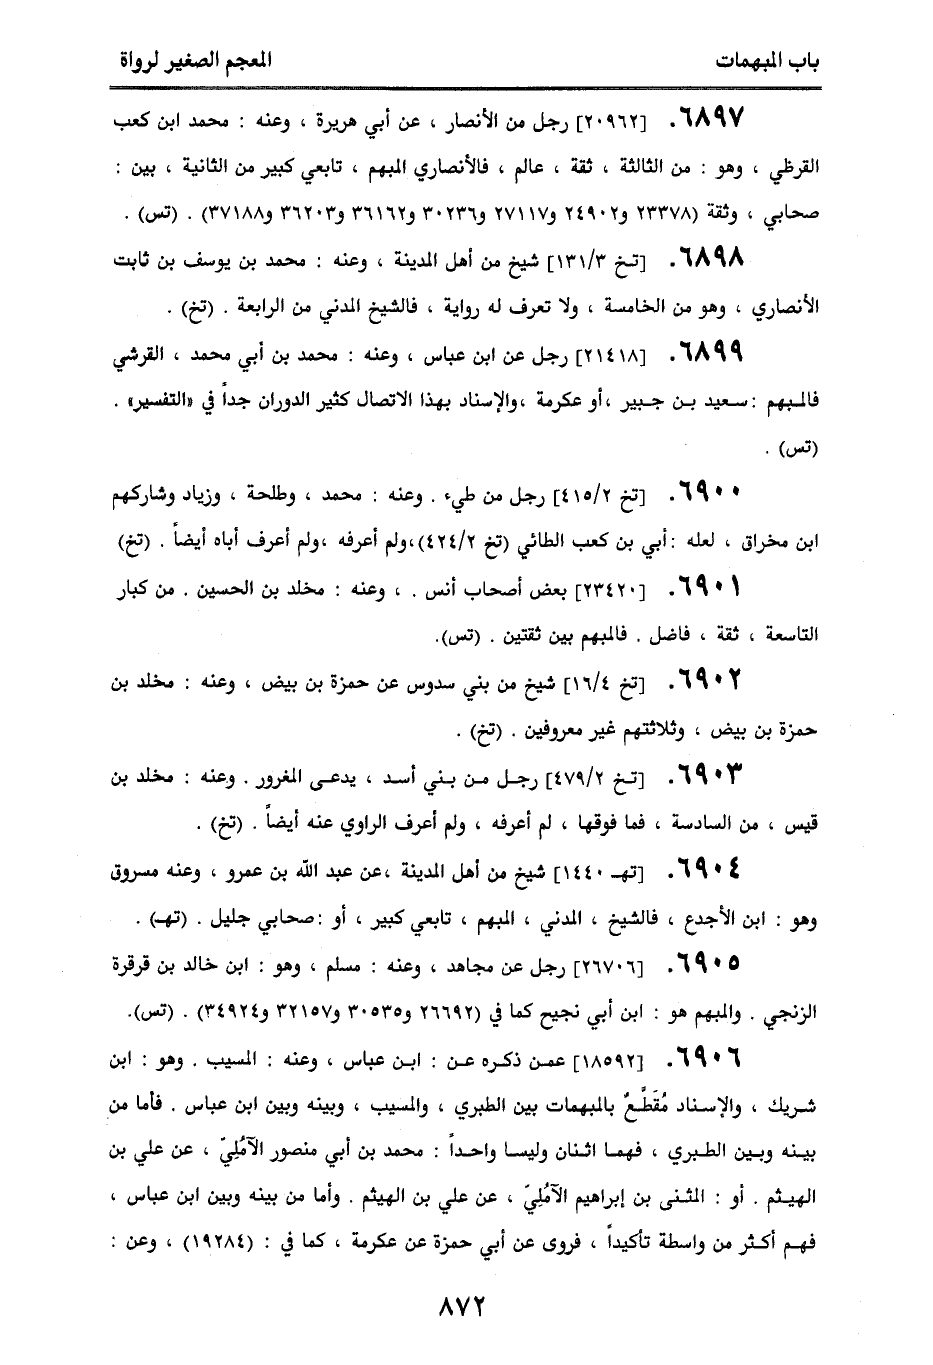 باب المبهمات المعجم الصغير لرواة
٦٨٩٧. [٢٠٩٦٢] رجل من الأنصار ، عن أبي هريرة ، وعنه : محمد ابن كعب
القرظي ، وهو : من الثالثة ، ثقة ، عالم ، فالأنصاري المبهم ، تابعي كبير من الثانية ، بين :
صحابي ، وثقة (٢٣٣٧٨ و٢٤٩٠٢ و٢٧١١٧ و٣٠٢٣٦ و٣٦١٦٢ و٣٦٢٠٣ و٣٧١٨٨) . (تس) .
٦٨٩٨. [تخ ١٣١/٣] شيخ من أهل المدينة ، وعنه : محمد بن يوسف بن ثابت
الأنصاري ، وهو من الخامسة ، ولا تعرف له رواية ، فالشيخ المدني من الرابعة . (تخ) .
٦٨٩٩. [٢١٤١٨] رجل عن ابن عباس ، وعنه : محمد بن أبي محمد ، القرشي
فالمبهم :سعيد بن جبير ،أو عكرمة ،والإسناد بهذا الاتصال كثير الدوران جداً في «التفسير» .
(تس) .
٦٩٠٠. [تخ ٤١٥/٢] رجل من طيء . وعنه : محمد ، وطلحة ، وزياد وشاركهم
ابن مخراق ، لعله :أبي بن كعب الطائي (تخ ٤٢٤/٢)،ولم أعرفه ،ولم أعرف أباه أيضاً . (تخ)
٦٩٠١. [٢٣٤٢٠] بعض أصحاب أنس . ، وعنه : مخلد بن الحسين . من كبار
التاسعة ، ثقة ، فاضل . فالمبهم بين ثقتين . (تس).
٦٩٠٢. [تخ ١٦/٤] شيخ من بني سدوس عن حمزة بن بيض ، وعنه : مخلد بن
حمزة بن بيض ، وثلاثتهم غير معروفين . (تخ) .
٦٩٠٣. [تخ ٤٧٩/٢] رجل من بني أسد ، يدعى المغرور . وعنه : مخلد بن
قيس ، من السادسة ، فما فوقها ، لم أعرفه ، ولم أعرف الراوي عنه أيضاً . (تخ) .
٦٩٠٤. [تهـ ١٤٤٠] شيخ من أهل المدينة ،عن عبد الله بن عمرو ، وعنه مسروق
وهو : ابن الأجدع ، فالشيخ ، المدني ، المبهم ، تابعي كبير ، أو :صحابي جليل . (تهـ) .
٦٩٠٥. [٢٦٧٠٦] رجل عن مجاهد ، وعنه : مسلم ، وهو : ابن خالد بن قرقرة
الزنجي . والمبهم هو : ابن أبي نجيح كما في (٢٦٦٩٢ و٣٠٥٣٥ و٣٢١٥٧ و٣٤٩٢٤) . (تس).
٦٩٠٦. [١٨٥٩٢] عمن ذكره عن : ابن عباس ، وعنه : المسيب . وهو : ابن
شريك ، والإسناد مُقَطَّعٌ بالمبهمات بين الطبري ، والمسيب ، وبينه وبين ابن عباس . فأما من
بينه وبين الطبري ، فهما اثنان وليسا واحداً : محمد بن أبي منصور الآمُلِيّ ، عن علي بن
الهيثم . أو : المثنى بن إبراهيم الآمُلِيّ ، عن علي بن الهيثم . وأما من بينه وبين ابن عباس ،
فهم أكثر من واسطة تأكيداً ، فروى عن أبي حمزة عن عكرمة ، كما في : (١٩٢٨٤) ، وعن :
٨٧٢